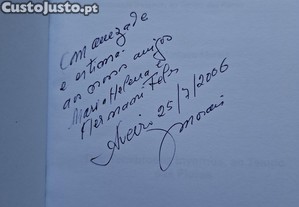 CustoJusto.pt
Com amizade
e estima
aos nossos amigos
Maria Helena e
Hermani
Aveiro 25/7/2006
Morais